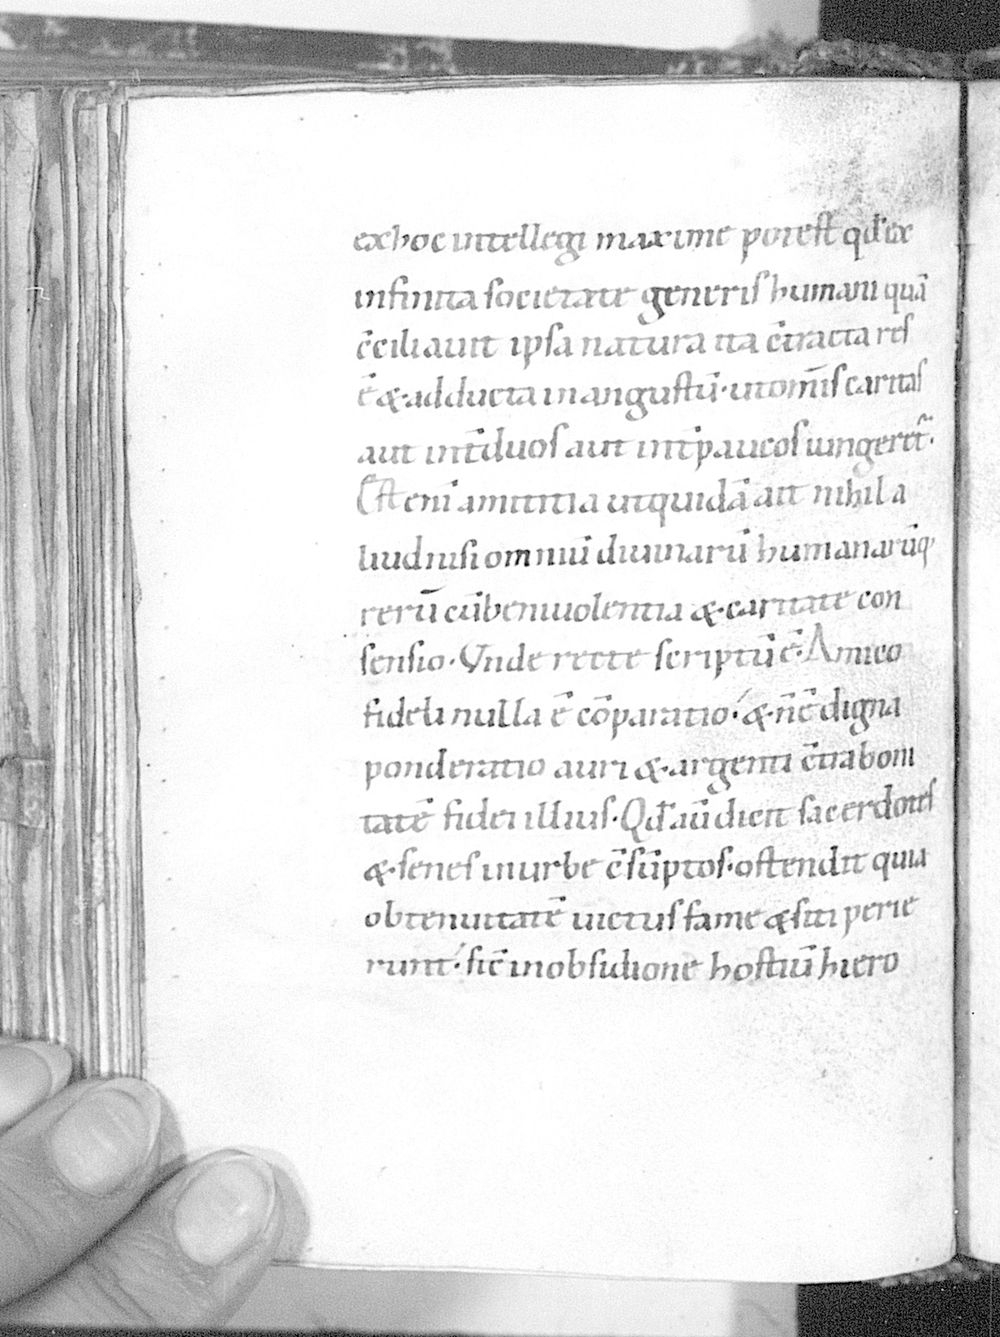 exhoc intellegi maxime potest qđ ex
infinita societate generis humani quā
c̄ciliauit ipsa natura ita c̄tracta res
ē &·adducta in angustū·utom̄is caritas
aut int̄duos aut int̄paucos iungeret̃·
Est eni amititia utquidā ait nihil a
liud nisi omniū diuinarū humanarūq
rerū cūbeniuolentia &·caritate con
sensio·Vnde recte scriptū ē·Amico
fideli nulla ē cōparatio·&·n̄ē digna
ponderatio auri &·argenti c̄traboni
tatē fidei illius·Qđ aū dicit sacerdotes
&·senes inurbe c̄sūptos·ostendit quia
obtenuitatē uictus fame &siti perie
runt·sic̄ inobsidione hostiū hiero